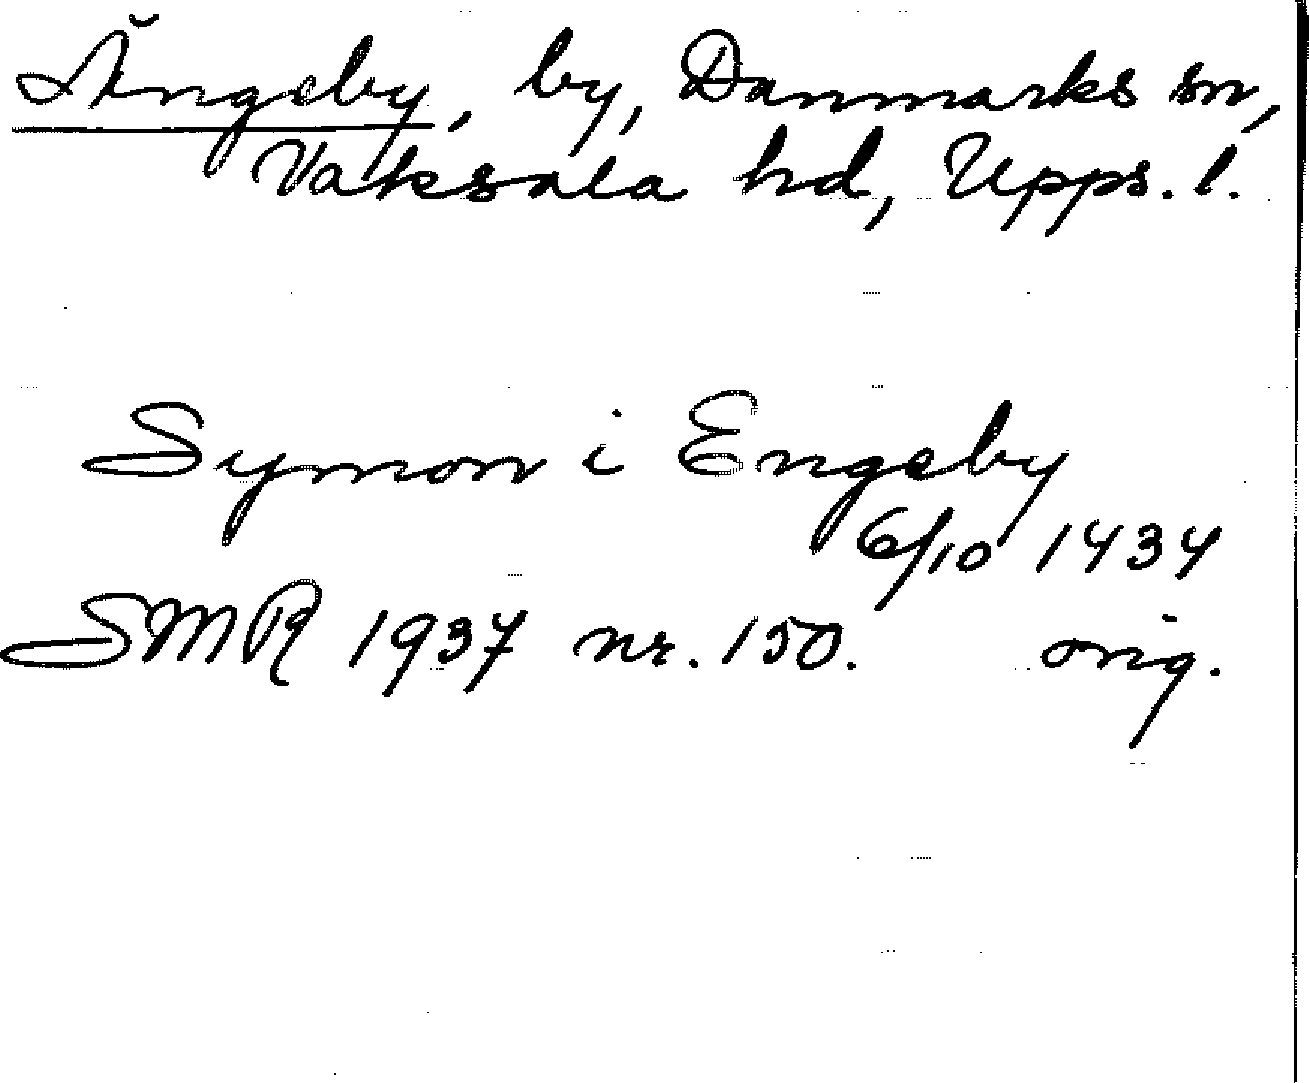 Ängeby, by, Danmarks sn,
Vaksala hd, Upps. l.
Symon i Engeby
6/10 1434
SMR 1937 nr. 150. orig.